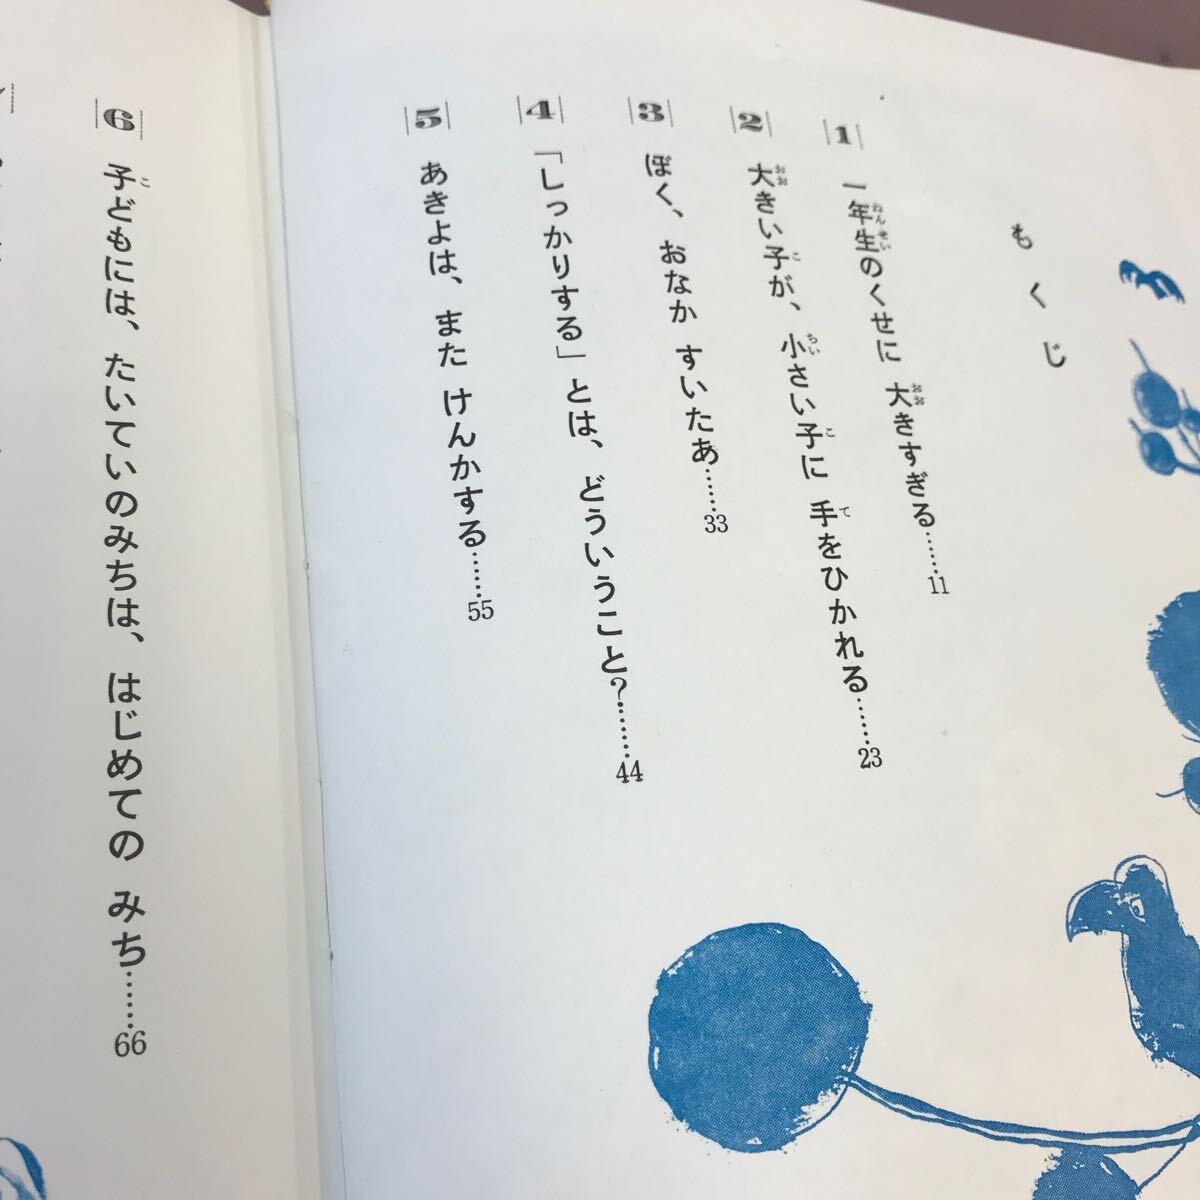 もくじ
1 一年生のくせに 大きすぎる……11
2 大きい子が、小さい子に 手をひかれる……23
3 ぼく、おなか すいたあ……33
4 「しっかりする」とは、どういうこと?……44
5 あきよは、また けんかする……55
6 子どもには、たいていのみちは、はじめての みち……66